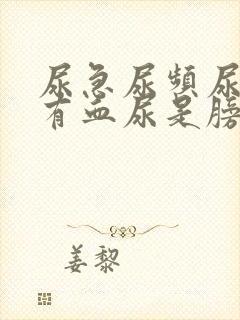 尿急尿頻尿
有血尿是膀
姜黎